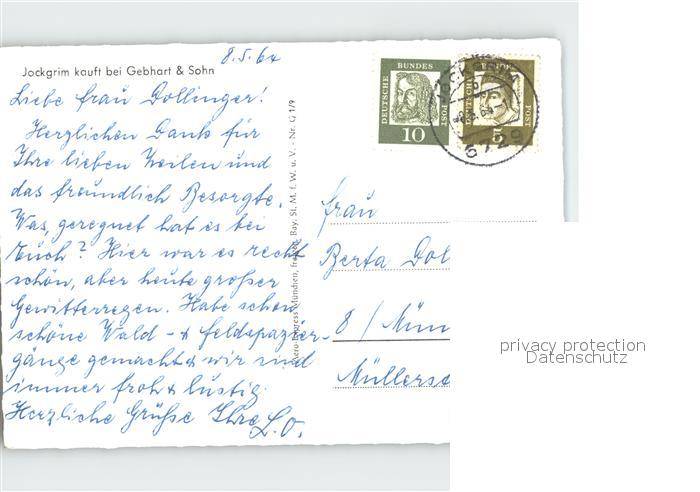 8.5.64
Jockgrim kauft bei Gebhart & Sohn
Liebe Frau Dollinger!
Herzlichen Dank für
Ihre lieben Zeilen und
das freundlich Besorgte.
Was, geregnet hat es bei
Euch? Hier war es recht
schön, aber heute großer
Gewitterregen. Habe schon
schöne Wald- & Feldspazier-
gänge gemacht & wir sind
immer froh & lustig.
Herzliche Grüße Ihre L.O.
München, Bay. St. M. f. W. u. V. - Nr. G 1/9
DEUTSCHE BUNDES POST
10
DEUTSCHE BUNDES POST
5
6729
Frau
Berta Dol
8 / Mün
Müllers
privacy protection
Datenschutz